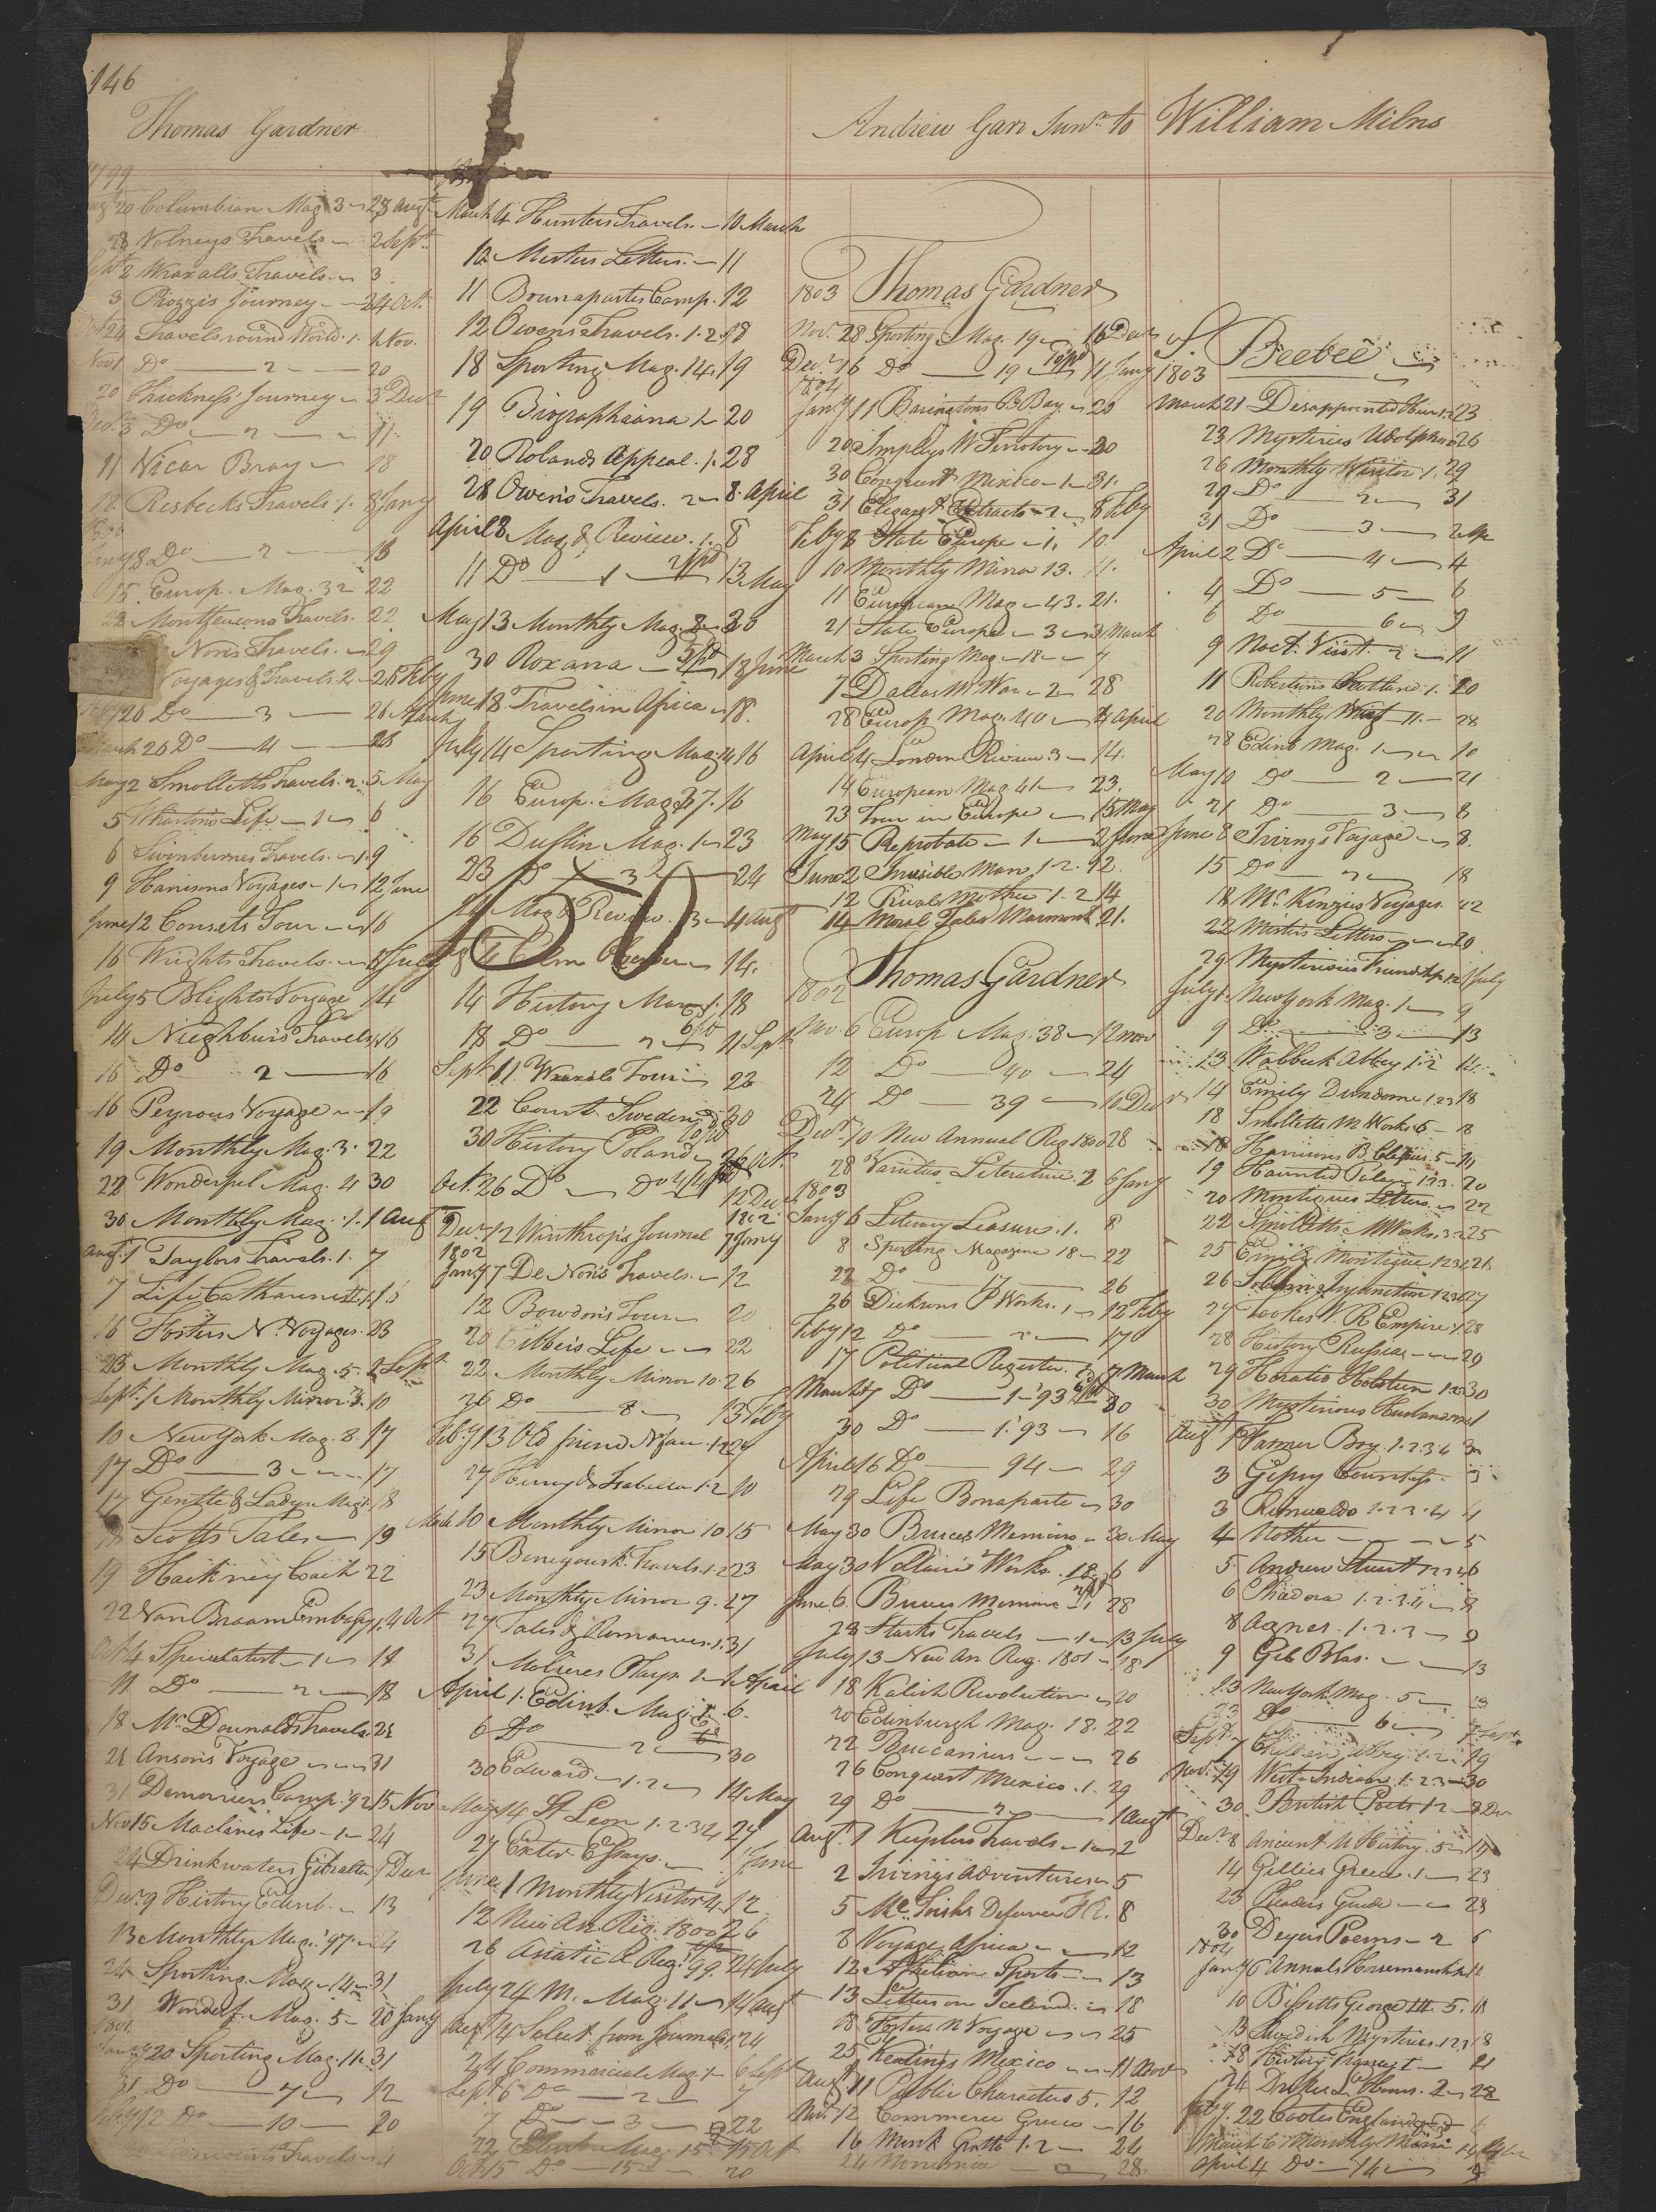 146
Thomas Gardner
1799
20 Columbian Mag. 3 28 Augt
28 Volneys Travels 2 Sept
2 Wraxalls Travels 3
3 Piozzis Journey 24 Oct.
24 Travels round World. 1. 1 Nov.
Nov 1 Do 2 20
20 Thickness Journey 3 Decr
Decr 3 Do 2 11
11 Vicar Bray 18
18 Resbecks Travels. 1. 8 Jany
1800
Jany 8 Do 2 15
15 Europ. Mag. 32 22
22 Travels. 22
Travels. 29
Voyages & Travels. 2 25 Feby
26 Do 3 26 March
March 26 Do 4 28
May 2 Smolletts Travels. 2. 5 May
5 Whartons Life 1 6
6 Swinburnes Travels. 1. 9
9 Harrisons Voyages 1 12 June
June 12 Consets Tour 16
16 Wrights Travels. 5 July
July 5 Blights Voyage 14
14 Nieghburs Travels 16
16 Do 2 16
16 Peyrous Voyage 19
19 Monthly Mag. 3. 22
22 Wonderful Mag. 4 30
30 Monthly Mag. 1. 1 Augt
Augt 1 Taylors Travels. 1. 7
7 Life Catharine II
16 Fosters N. Voyages. 23
23 Monthly Mag. 5. 2 Sept
Sept. 1 Monthly Mirror 3. 10
10 New York Mag. 8 17
17 Do 3 17
17 Gentle & Ladys Mag. 18
18 Scotts Tales 19
19 Hackney Coach 22
22 Van Braam Embassy 1. 4 Oct
Oct 4 Speculatist 1 11
11 Do 2 18
18 Mc Dounalds Travels 21
21 Ansons Voyage 31
31 Demouriers Camp. 92 15 Nov
Nov 15 Maclines Life 1 24
24 Drinkwaters Gibralter 9 Decr
Decr 9 History Edinb. 13
13 Monthly Mag. 97. 24
24 Sporting Mag. 14 31
31 Wonderf. Mag. 5 20 Jany
1801
Jany 20 Sporting Mag. 11. 31
31 Do 7 12
Feby 12 Do 10 20
Travels 4
March 4 Hunters Travels. 10 March
10 Misters Letters. 11
11 Bounapartes Camp. 12
12 Owens Travels. 1. 2. 18
18 Sporting Mag. 14. 19
19 Biographiana 1 20
20 Rolands Appeal. 1. 28
28 Owens Travels. 2 8. April
April 8 Mag. & Review. 1. 8
11 Do 1 13 May
May 13 Monthly Mag. 2 30
30 Roxana 18 June
June 18 Travels in Africa 18.
July 14 Sporting Mag. 14 16
16 Europ. Mag. 37. 16
16 Dublin Mag. 1 23
23 Do 3 24
24 Mag. & Review. 3 4 Augt
14.
14 History 1. 18
18 Do 2 11 Sept
Sept 11 Wraxals Tour 22
22 Court Sweden 30
30 History Poland 26 Oct.
Oct. 26 Do Do 12 Decr
Decr 12 Winthrops Journal 7 Jany
1802
Jany 7 De Nons Travels. 12
12 Bowdons Tour 20
20 Cibbers Life 22
22 Monthly Mirror 10. 26
26 Do 8 13 Feby
Feby 13 Old friend 27
27 Henry & Isabella 1. 2 10
March 10 Monthly Mirror 10 15
15 Travels. 1. 2 23
23 Monthly Mirror 9. 27
27 Tales & Romances. 1. 31
31 Molieres Plays. 1 April
April 1. Edinb. Mag. 1. 6.
6 Do 2 30
30 Edward 1. 2 14 May
May 14 St Leon 1. 2. 3 4 27
27 Exter Essays. June
June 1 Monthly Visitor 4 12
12 New An. Reg. 1800 26
26 Asiatic A Reg. 99. 24 July
July 24 M. Mag. 11 14 Augt
Augt 14 Select. from Journals 1. 24
24 Commercial Mag. 1 6 Sept
Sept. 6 Do 2 7
7 Do 3 22
22 Edinb. Mag. 15 15 Oct
Oct 15 Do 15 20
Andrew Garr Junr. to William Milns
1803 Thomas Gardner
Nov. 28 Sporting Mag. 19 16 Decr
Decr. 16 Do 19 11 Jany
1804
Jany 11 Baringtons B. Bay. 20
20 Impleys W Finitory 30
30 Conquest Mexico 1 31.
31 Elegant Extracts 2 8 Feby
Feby 8 State Europe 1. 10
10 Monthly Mirror 13. 11.
11 European Mag 43. 21.
21 State Europe 3 3 March
March 3 Sporting Mag 18 7
7 Dallas M War 2 28
28 Europ Mag. 40 4 April
April 4 London Review 3 14.
14 European Mag. 41 23.
23 Tour in Europe 15 May
May 15 Reprobate 1 2 June
June 2 Invisible Man 1. 2. 12.
12 Rival Mother 1. 2 14
14 Moral Tales Marmontl 21.
1802 Thomas Gardner
Nov. 6 Europ Mag. 38 12 nov
12 Do 40 24
24 Do 39 10 Decr
Decr. 10 New Annual Reg 1800 28
28 Varieties Literature. 2 6 Jany
1803
Jany 6 Literary Leasure. 1. 8
8 Sporting Magazine 18 22
22 Do 17 26
26 Dicksons P Works. 1 12 Feby
Feby 12 Do 2 17
17 Political Register. 7 March
March 7 Do 1. '93 30
30 Do 1. 93 16
April 16 Do 94 29
29 Life Bonaparte 30
May 30 Bruces Memoirs 30 May
May 30 Voltaires Works. 18. 6
June 6. Bruces Memoirs 28
28 Starks Travels 1 13 July
July 13 New An Reg. 1801 18
18 Kalish Revolution 20
20 Edinburgh Mag. 18. 22
22 Buccaniers 26
26 Conquest Mexico. 1. 29
29 Do 2 1 Augt
Augt. 1 Kuplus Travels 1 2
2 Irvings Adventures 5
5 Mc Defence F R. 8
8 Voyage Africa 12
12 Sports 13
13 Letters on Iceland. 18
18 Fosters N Voyage 25
25 Keatings Mexico 11 Nov
Augt 11 Public Characters 5. 12
Nov. 12 Commerce Greece 16
16 Monk Grotto 1. 2 24
24 28.
S. Beebee
1803
March 21 Desappointed Heir 1. 2 23
23 Mysteries Udolpho 26
26 Monthly Visitor 1. 29
29 Do 2 31
31 Do 3 2 Ap
April 2 Do 4 4
4 Do 5 6
6 Do 6 9
9 Noct. Visit. 2 11
11 Robertsons Scotland. 1. 20
20 Monthly Visit 11. 28
28 Edinb Mag. 1 10
May 10 Do 2 21
21 Do 3 8
June 8 Irvings Voyage 8.
15 Do 2 18
18 Mc Kinzies Voyages. 22
22 Misters Letters 29
29 Mysterious Friendship 1. 2 1 July
July 1. New York Mag. 1 9
9 Do 3 13
13 Walbeck Abbey 1. 2 14
14 Emily Dundorne 1 2 3 18
18 Smolletts M Works 6 18
18 Harrisons B. Classics. 5 19
19 Haunted Palace 1 2 3. 20
20 Montagues Letters 22
22 Smolletts M Works. 3. 25
25 Emily Montigue 1 2 3 4 26
26 Solemn Injunction 1 2 3 4 27
27 Tookes V. R Empire 1. 28
28 History Russia 29
29 Horatio Holstein 1 2 3 30
30 Mysterious Husband
Augt 1 Farmer Boy. 1. 2. 3 4 3
3 Gipsy Countess. 3
3 Romualdo 1. 2. 3. 4 4
4 Mother 5
5 Andrew Stuart 1 2 3 4 6
6 Theodora 1. 2. 3. 4 8
8 Agnes. 1. 2. 3 9
9 Gil Blas. 13
13 New York Mag. 5 23
23 Do 6 7 Sept.
Sept. 7 Abbey. 1. 2. 19
Nov. 19 West Indian 1. 2. 3 30
30 British Poets 1. 2 8 Dec
Decr. 8 Ancient U History. 5 14
14 Gillies Greece. 1 23
23 Pleaders Guide 23
30 Deyers Poems 2 6
1804
Jany 6 Annals Horsemanship 10
10 Bissetts George III. 5. 13
13 Swedish Mysteries. 1. 2. 3 18
18 History 21
24 Drakes L. Hours. 2 22
Feby. 22 Cootes England 6
March 6 Monthly Mirror 14
April 4 Do 14